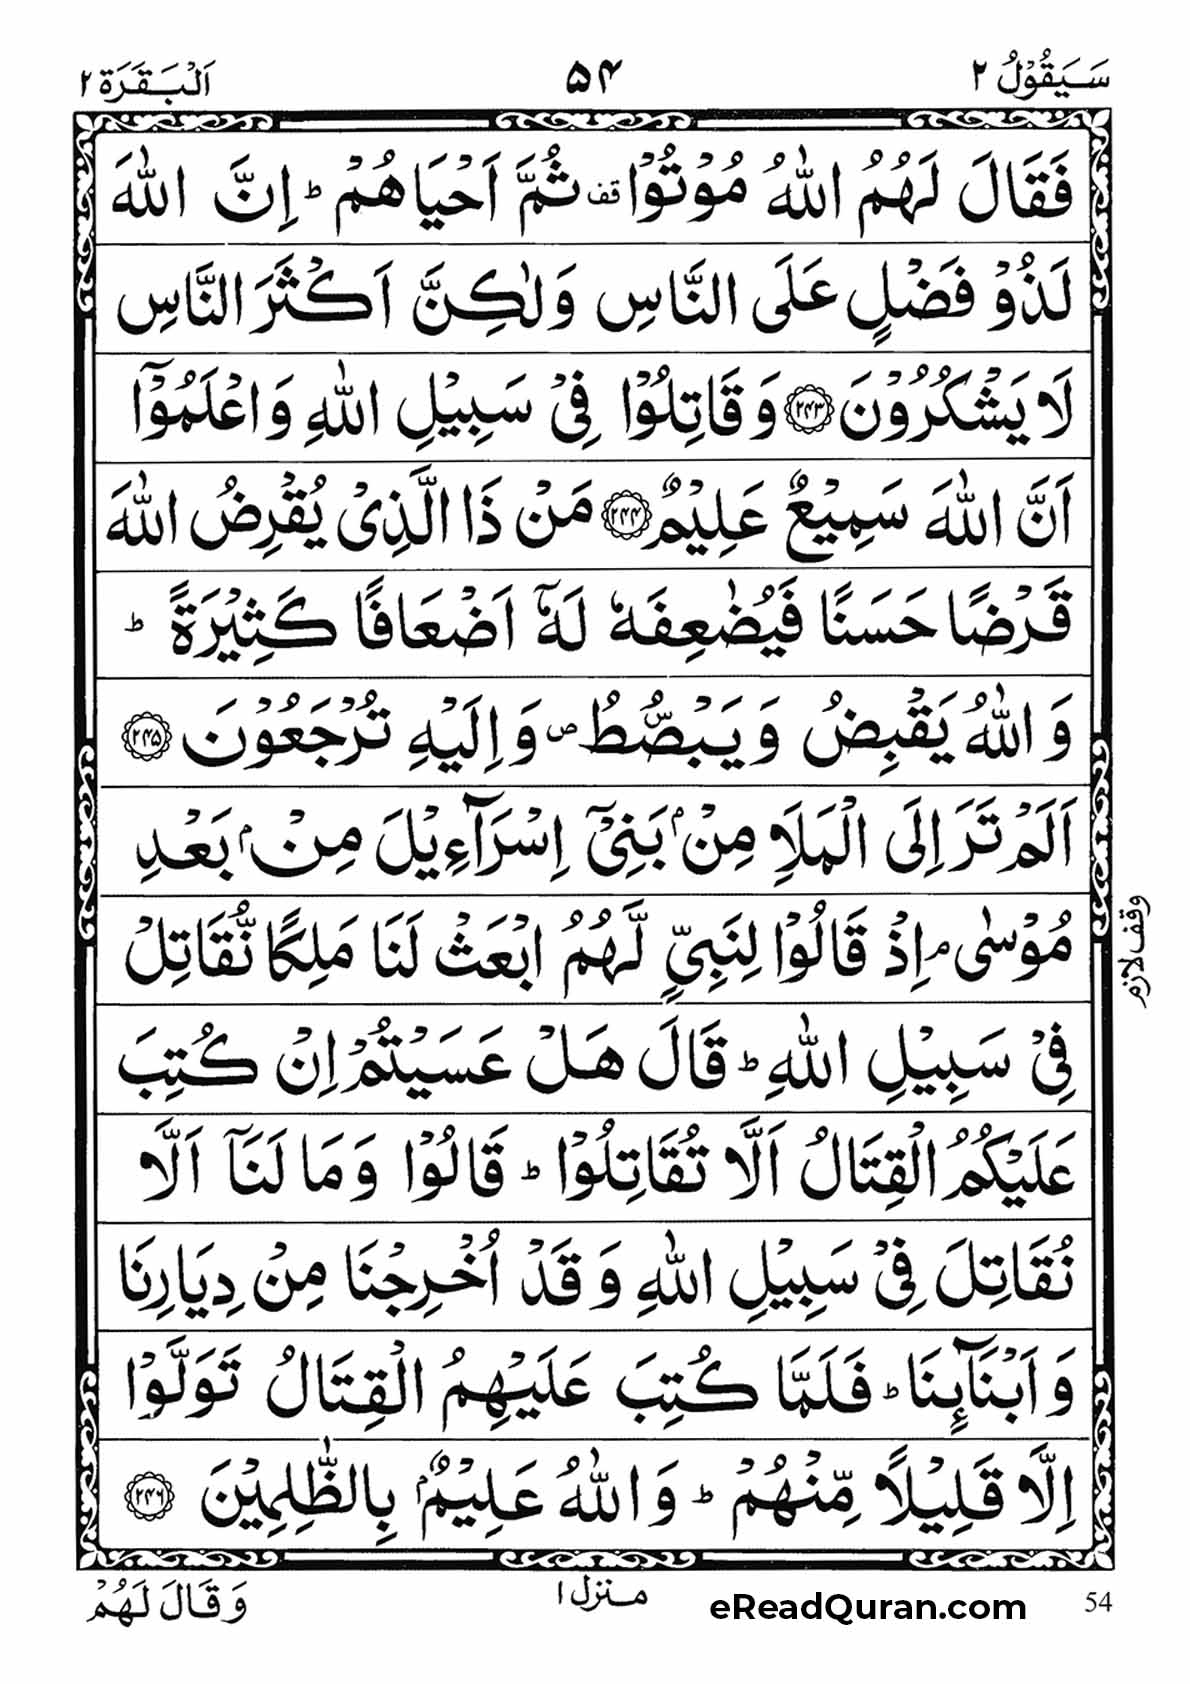 سَيَقُوْلُ ٢
۵۴
اَلْبَقَرَة ٢
فَقَالَ لَهُمُ اللّٰهُ مُوْتُوْا قف ثُمَّ اَحْيَاهُمْ ؕ اِنَّ اللّٰهَ
لَذُوْ فَضْلٍ عَلَى النَّاسِ وَلٰكِنَّ اَكْثَرَ النَّاسِ
لَا يَشْكُرُوْنَ ﴿۲۴۳﴾ وَ قَاتِلُوْا فِىْ سَبِيْلِ اللّٰهِ وَ اعْلَمُوْۤا
اَنَّ اللّٰهَ سَمِيْعٌ عَلِيْمٌ ﴿۲۴۴﴾ مَنْ ذَا الَّذِىْ يُقْرِضُ اللّٰهَ
قَرْضًا حَسَنًا فَيُضٰعِفَهٗ لَهٗۤ اَضْعَافًا كَثِيْرَةً ؕ
وَ اللّٰهُ يَقْبِضُ وَ يَبْصُۜطُ ص وَ اِلَيْهِ تُرْجَعُوْنَ ﴿۲۴۵﴾
اَلَمْ تَرَ اِلَى الْمَلَاِ مِنْۢ بَنِىْۤ اِسْرَآءِيْلَ مِنْۢ بَعْدِ
مُوْسٰى ۘ اِذْ قَالُوْا لِنَبِىٍّ لَّهُمُ ابْعَثْ لَنَا مَلِكًا نُّقَاتِلْ
وقف لازم
فِىْ سَبِيْلِ اللّٰهِ ؕ قَالَ هَلْ عَسَيْتُمْ اِنْ كُتِبَ
عَلَيْكُمُ الْقِتَالُ اَلَّا تُقَاتِلُوْا ؕ قَالُوْا وَ مَا لَنَاۤ اَلَّا
نُقَاتِلَ فِىْ سَبِيْلِ اللّٰهِ وَ قَدْ اُخْرِجْنَا مِنْ دِيَارِنَا
وَ اَبْنَآئِنَا ؕ فَلَمَّا كُتِبَ عَلَيْهِمُ الْقِتَالُ تَوَلَّوْا
اِلَّا قَلِيْلًا مِّنْهُمْ ؕ وَ اللّٰهُ عَلِيْمٌۢ بِالظّٰلِمِيْنَ ﴿۲۴۶﴾
وَ قَالَ لَهُمْ
منزل ١
eReadQuran.com
54